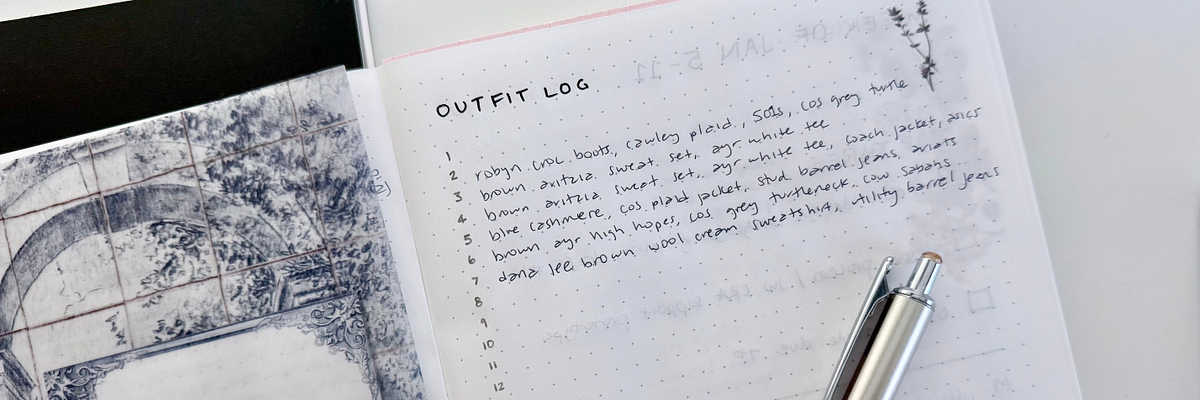 OUTFIT LOG
1
2 robyn croc boots, cawley plaid, 501s, cos grey turtle
3 brown aritzia sweat set, ayr white tee
4 brown aritzia sweat set, ayr white tee, coach jacket, asics
5 blue cashmere, cos plaid jacket, stud barrel jeans, aviats
6 brown ayr high hopes, cos grey turtleneck, cow sabahs
7 dana lee brown wool cream sweatshirt, utility barrel jeans
8
9
10
11
12
WEEK OF JAN 5-11